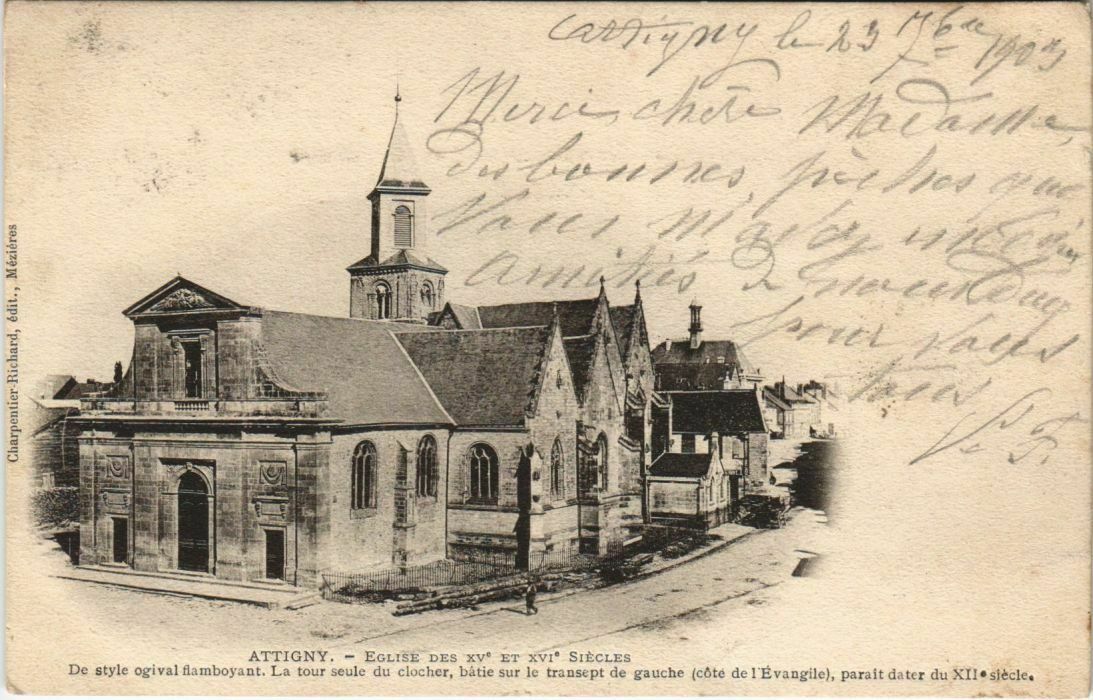 Attigny le 23 7bre 1903
Merci chère Madame,
des bonnes pêches que
Vous m'a
Amitiés &
pour vous
tous
Charpentier-Richard, édit., Mézières
ATTIGNY. – EGLISE DES XVe ET XVIe SIÈCLES
De style ogival flamboyant. La tour seule du clocher, bâtie sur le transept de gauche (côté de l'Évangile), parait dater du XIIe siècle.